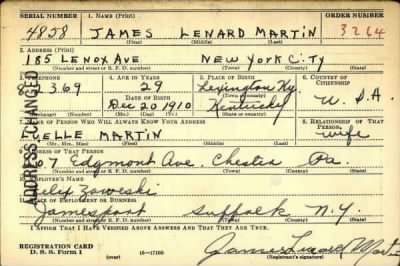 SERIAL NUMBER 1. NAME (Print) ORDER NUMBER
4828 JAMES LENARD MARTIN 3264
(First) (Middle) (Last)
2. ADDRESS (Print)
185 LENOX AVE NEW YORK CITY
(Number and street or R. F. D. number) (Town) (County) (State)
3. TELEPHONE 4. AGE IN YEARS 5. PLACE OF BIRTH 6. COUNTRY OF CITIZENSHIP
369 29 Lexington Ky.
DATE OF BIRTH (Town or county)
Dec 20 1910 Kentucky U.S.A.
(Mo.) (Day) (Yr.) (State or country)
7. NAME OF PERSON WHO WILL ALWAYS KNOW YOUR ADDRESS 8. RELATIONSHIP OF THAT PERSON
MARTIN wife
(Mr., Mrs., Miss) (First) (Middle) (Last)
9. ADDRESS OF THAT PERSON
Edgmont Ave. Chester Pa.
(Number and street or R. F. D. number) (Town) (County) (State)
10. EMPLOYER'S NAME
Felix Zaweski
11. PLACE OF EMPLOYMENT OR BUSINESS
Jamesport Suffolk N.Y.
(Number and street or R. F. D. number) (Town) (County) (State)
I AFFIRM THAT I HAVE VERIFIED ABOVE ANSWERS AND THAT THEY ARE TRUE.
REGISTRATION CARD
D. S. S. Form 1 (over) 16—17105 James Lenard Martin
(Registrant's signature)
ADDRESS CHANGED